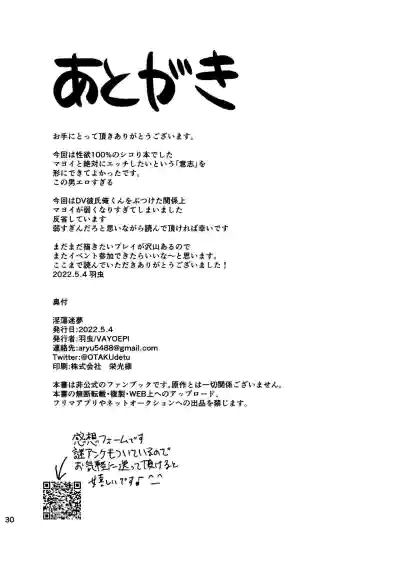 あとがき
お手にとって頂きありがとうございます。
今回は性欲100%のシコり本でした
マヨイと絶対にエッチしたいという「意志」を
形にできてよかったです。
この男エロすぎる
今回はDV彼氏俺くんをぶつけた関係上
マヨイが弱くなりすぎてしまいました
反省しています
弱すぎんだろと思いながら読んで頂ければ幸いです
まだまだ描きたいプレイが沢山あるので
またイベント参加できたらいいな〜と思います。
ここまで読んでいただきありがとうございました!
2022.5.4 羽虫
奥付
淫蕩迷夢
発行日:2022.5.4
発行者:羽虫/VAYOEPI
連絡先:aryu5488@gmail.com
Twitter:@OTAKUdetu
印刷:株式会社 栄光様
本書は非公式のファンブックです。原作とは一切関係ございません。
本書の無断転載・複製・WEB上へのアップロード、
フリマアプリやネットオークションへの出品を禁じます。
感想フォームです
謎アンケもついているので
お気軽に送って頂けると
嬉しいです♪^^
30